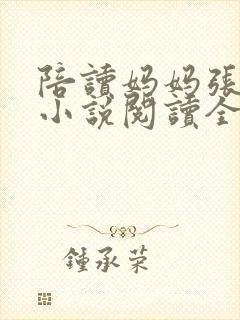 陪讀媽媽張
小說閱讀全
鍾承荣